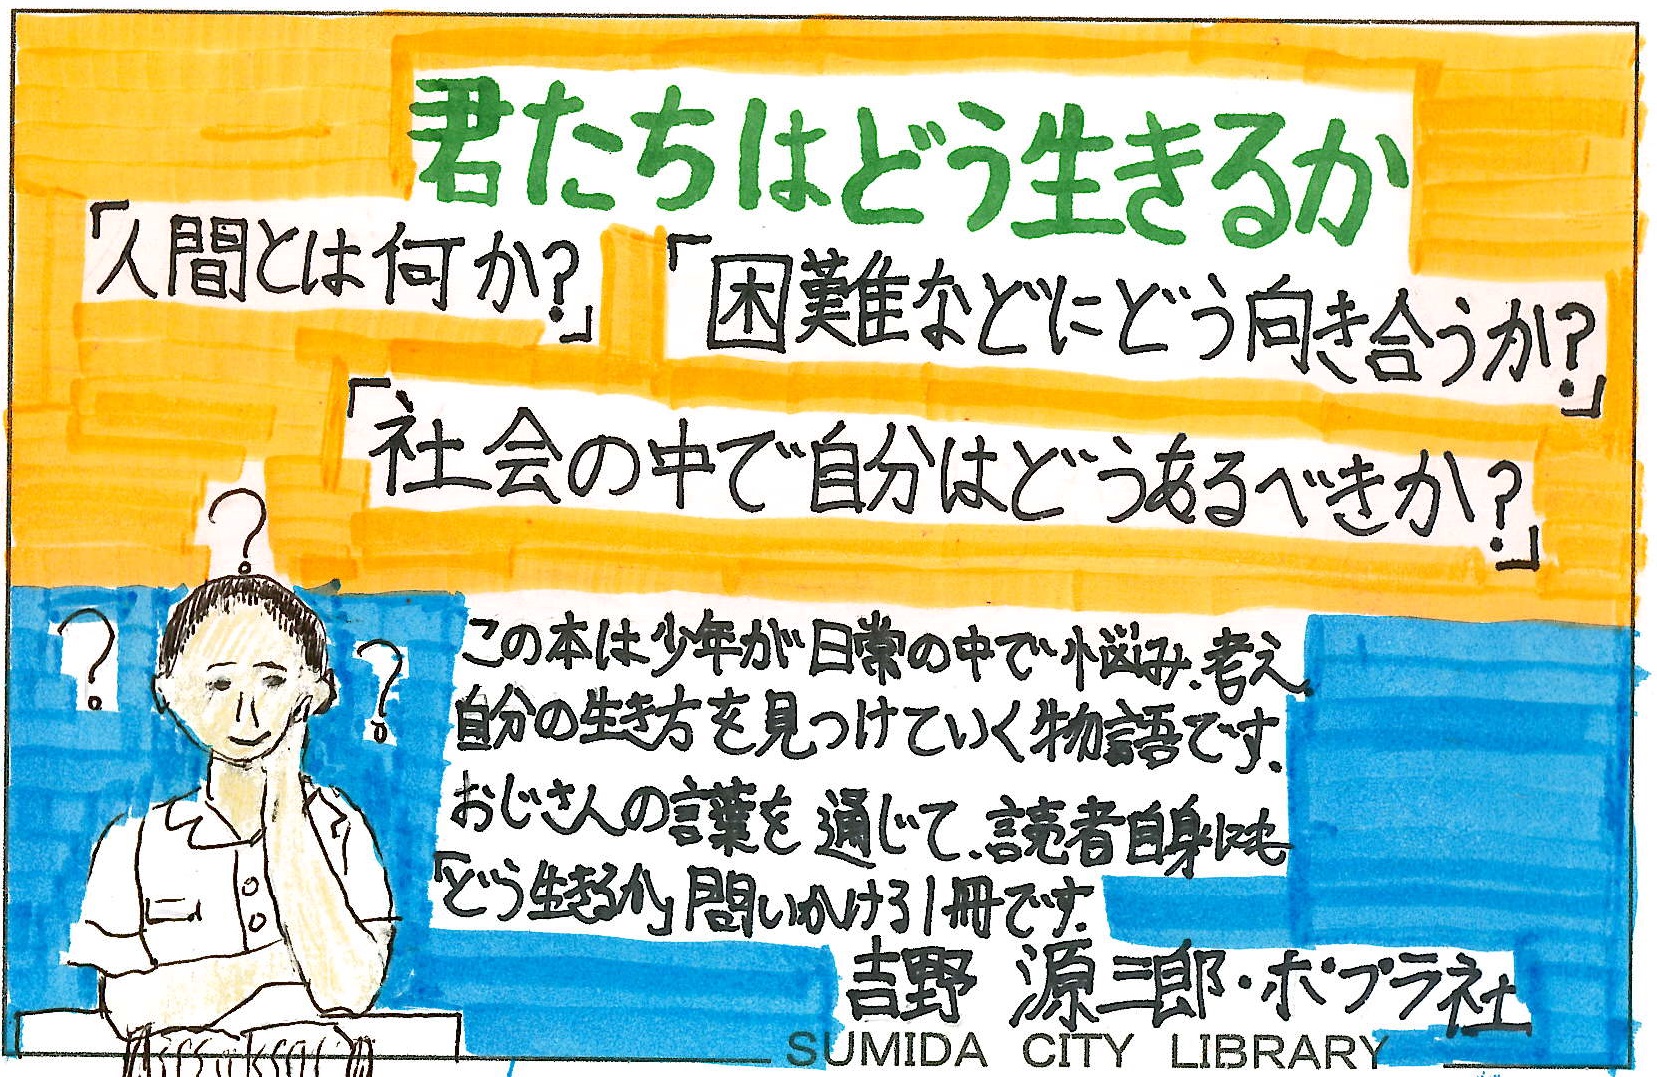 君たちはどう生きるか
「人間とは何か?」
「困難などにどう向き合うか?」
「社会の中で自分はどうあるべきか?」
?
?
?
この本は少年が日常の中で悩み、考え、
自分の生き方を見つけていく物語です。
おじさんの言葉を通じて、読者自身にも
「どう生きるか」問いかける1冊です。
吉野 源三郎・ポプラ社
SUMIDA CITY LIBRARY